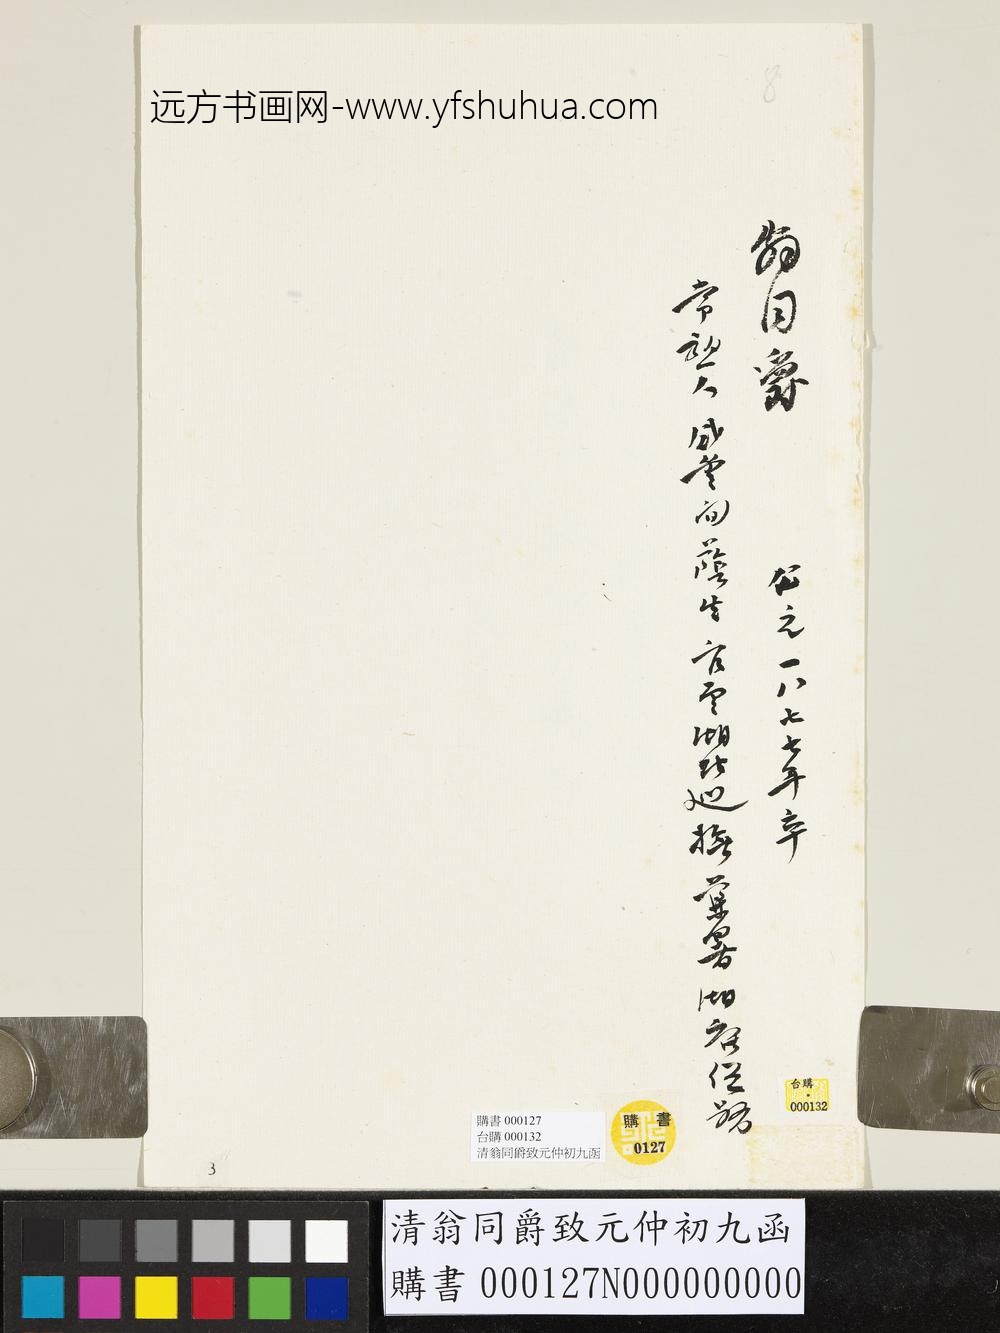 远方书画网-www.yfshuhua.com
8
翁同爵
公元一八七七年卒
常熟人咸豐間蔭生官至湖北巡撫兼署湖廣總督
台購
000132
購書
0127
購書 000127
台購 000132
清翁同爵致元仲初九函
3
清翁同爵致元仲初九函
購書 000127N000000000